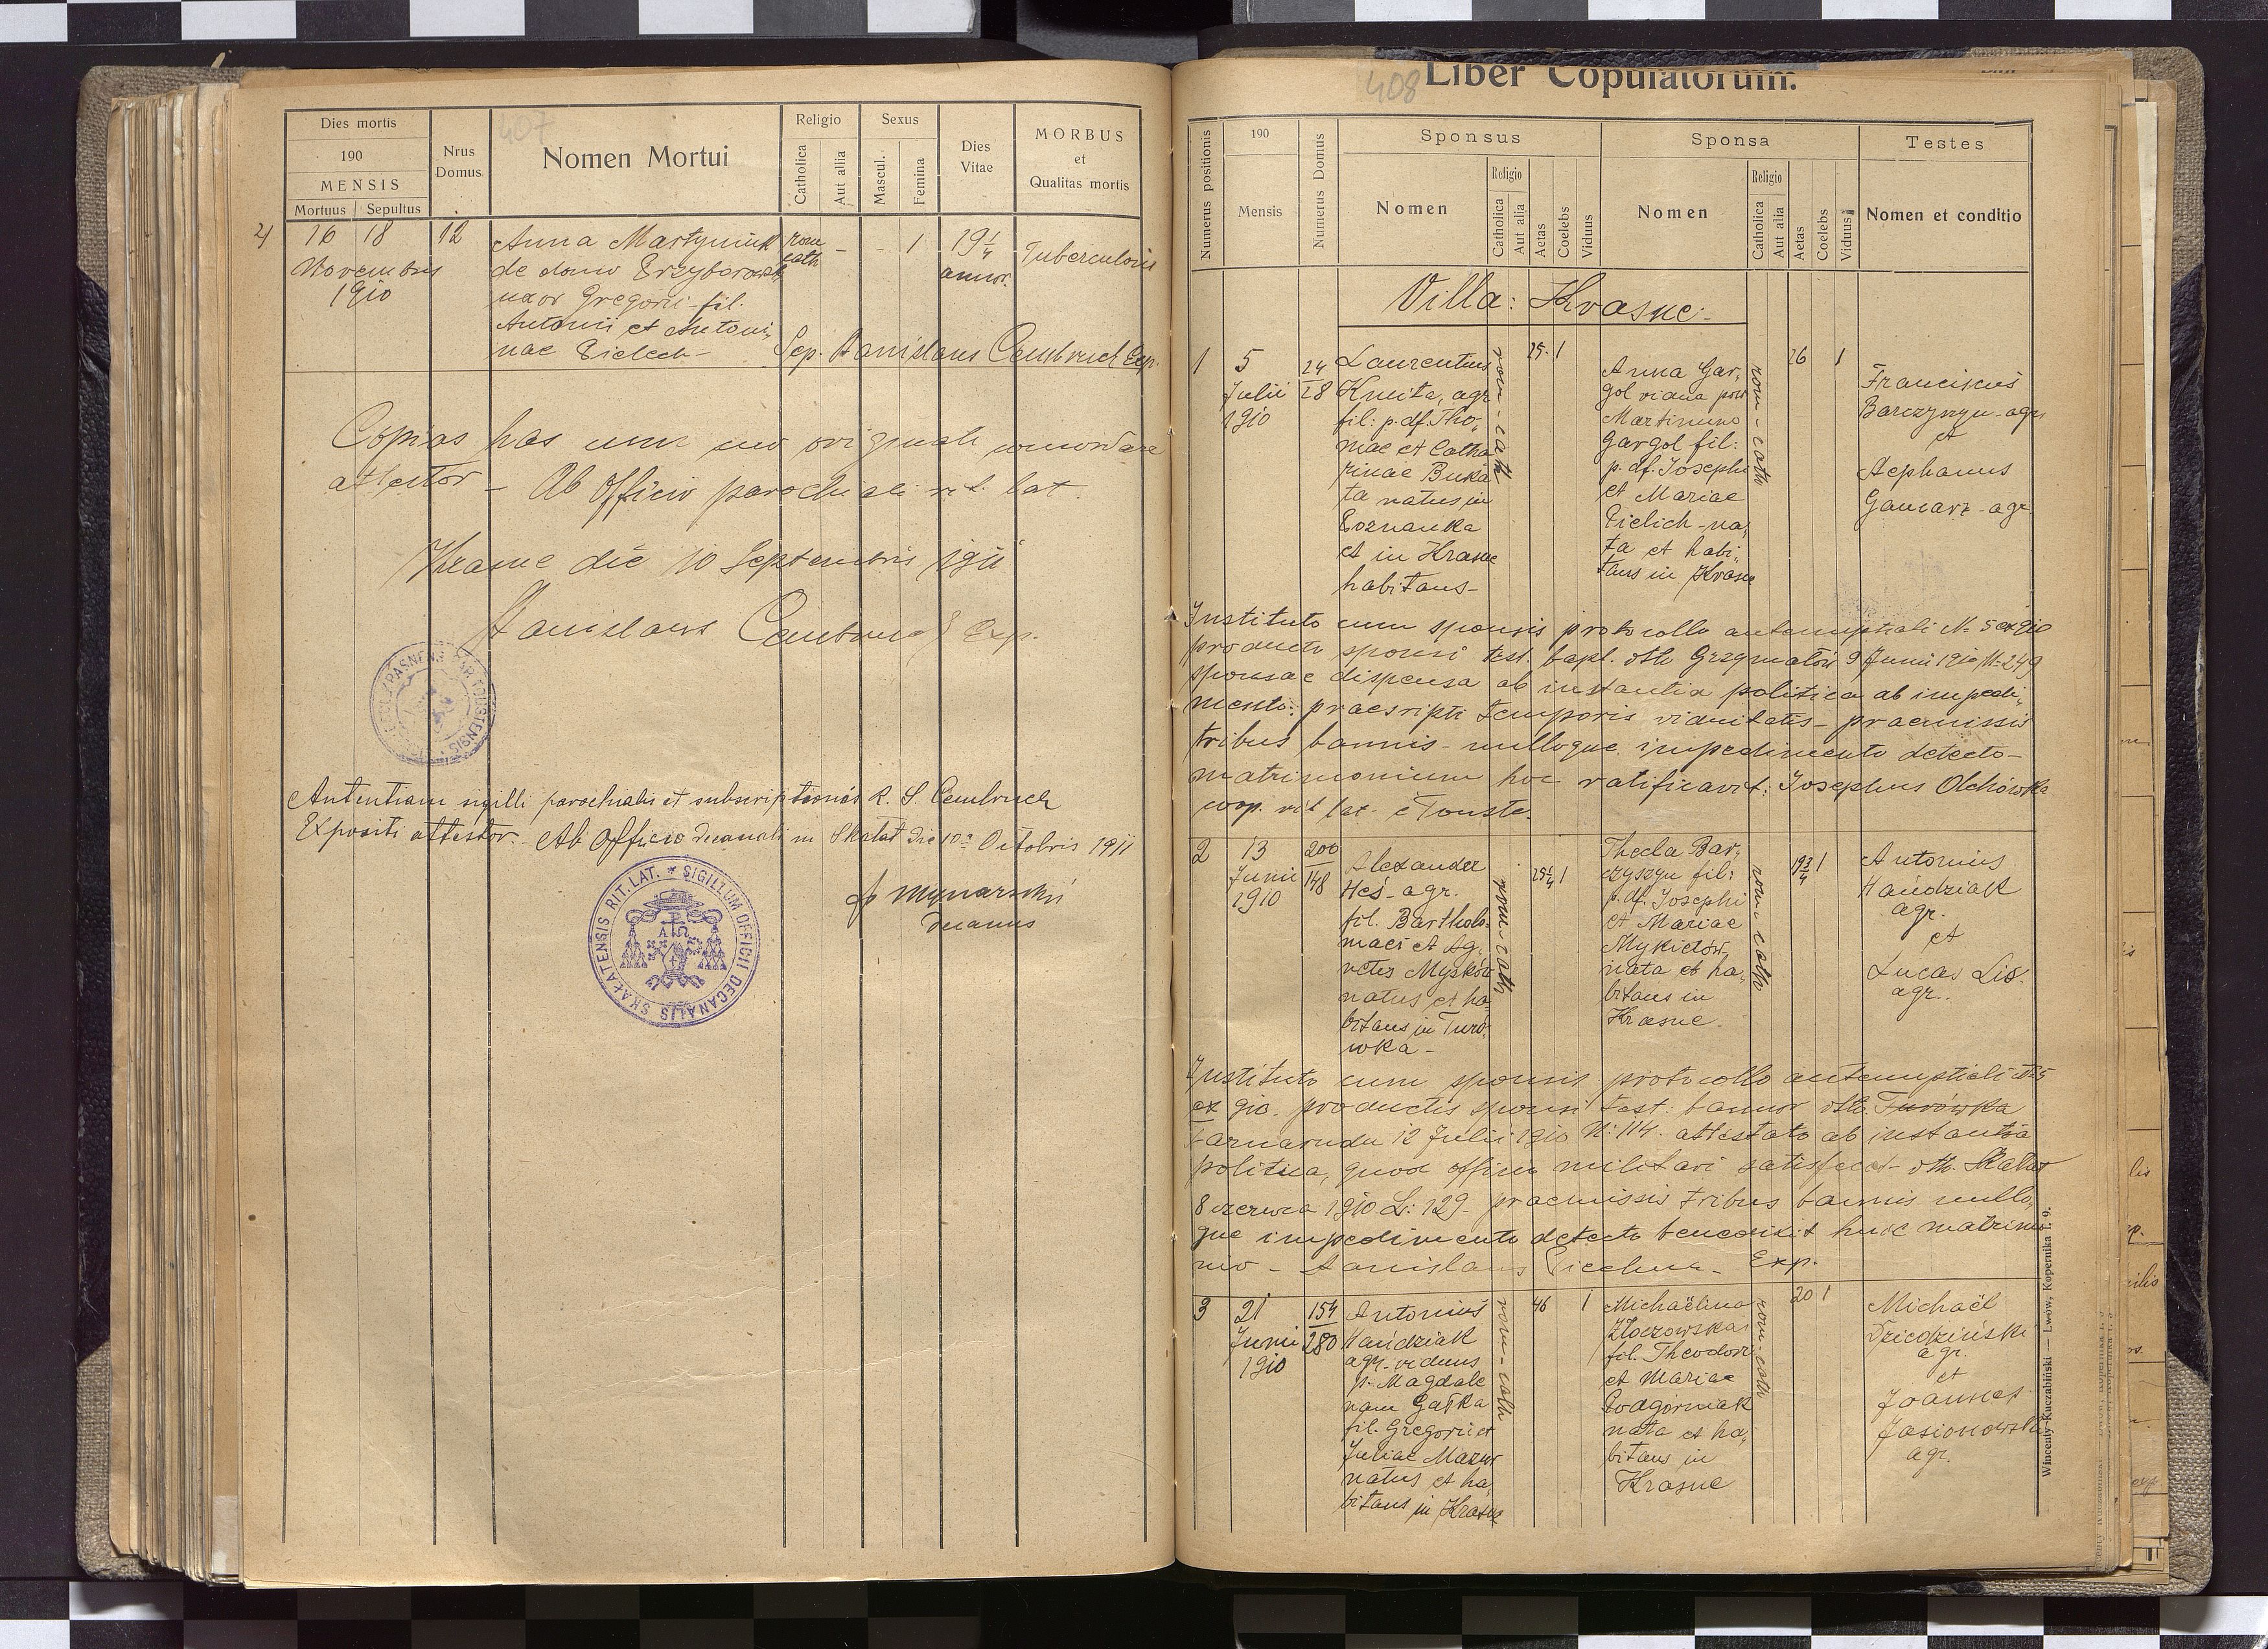 407
Dies mortis
190
MENSIS
Mortuus Sepultus
Nrus Domus
Nomen Mortui
Religio
Catholica
Aut alia
Sexus
Mascul.
Femina
Dies Vitae
MORBUS
et
Qualitas mortis
16 18 12 Anna Martyniuk rom - - 1 19 1/4 Tuberculosis
Novembris de domo cath annor.
1910 uxor Gregorii fil.
Antonii et Antoni-
nae Pielech - Sep. Stanislaus Cembruch Exp.
Copias has cum suo originali concordare
attestor - Ab Officio parochiali rit. lat
Krasne die 10 Septembris 1911
Stanislaus Cembruch Exp.
Autentiam sigilli parochialis et subscriptionis R. S. Cembruch
Expositi attestor. - Ab Officio decanali in Skałat die 10a Octobris 1911
Mynarski
decanus
SIGILLUM OFFICII DECANALIS SKAŁATENSIS RIT. LAT.
408
Liber Copulatorum.
Numerus positionis
190
Mensis
Numerus Domus
Sponsus
Nomen
Religio
Catholica
Aut alia
Aetas
Coelebs
Viduus
Sponsa
Nomen
Religio
Catholica
Aut alia
Aetas
Coelebs
Viduus
Testes
Nomen et conditio
Villa: Krasne
1 5 24 Laurentius rom-cath 25 1 Anna Gar- rom-cath 26 1 Franciscus
Julii 28 Kmita, agr. gol vidua post Barczyszyn - agr.
1910 fil. p. df. Tho- Martinum et
mae et Catha Gargol fil: Stephanus
rinae Buka p. df. Josephi Gancarz - agr.
ta natus in et Mariae
Poznanka Pielich - na-
et in Krasne ta et habi-
habitans - tans in Krasne
Instituto cum sponsis protocollo antenuptiali No 5 ex 910
producto sponsi test. bapt. dtto Grzymałów 9 Junii 1910 No 249
sponsae dispensa ab instantia politica ab impedi-
mento: praescripti temporis viduitatis - praemissis
tribus bannis - nulloque impedimento detecto -
matrimonium hoc ratificavit: Josephus Olchówka
coop. rit lat. e Touste.
2 13 200 Alexander rom-cath 25 1/4 1 Thecla Bar- rom-cath 19 3/4 1 Antonius
Junii 148 Heś - agr. czyszyn fil: Hańdziak
1910 fil. Bartholo- p. df. Josephi agr.
maei et Ag- et Mariae et
netis Myśków Mykietów Lucas Lis.
natus et ha- nata et ha- agr.
bitans in Turó- bitans in
wka - Krasne
Instituto cum sponsis protocollo antenuptiali No 5
ex 910. productis sponsi test: bannor dtto. Turówka
Tarnaruda 12 Julii 1910 N: 114. attestato ab instantia
politica, quod officio militari satisfecit - dtto. Skałat
8 czerwca 1910 L: 129 - praemissis tribus bannis nullo-
que impedimento detecto benedixit huic matrimo-
nio - Stanislaus Exp.
3 21 154 Antonius rom-cath 46 1 Michaëlina rom-cath 20 1 Michaël
Junii 280 Hańdziak Złoczowska Dziedziński
1910 agr. viduus fil. Theodori agr.
p. Magdale et Mariae et
nam Gałka Podgórniak Joannes
fil. Gregorii et nata et ha- Jasionowski
Juliae Mazur bitans in agr.
natus et ha- Krasne
bitans in Krasne
Winceniy Kuczabiński — Lwów, Kopernika 1. 9.